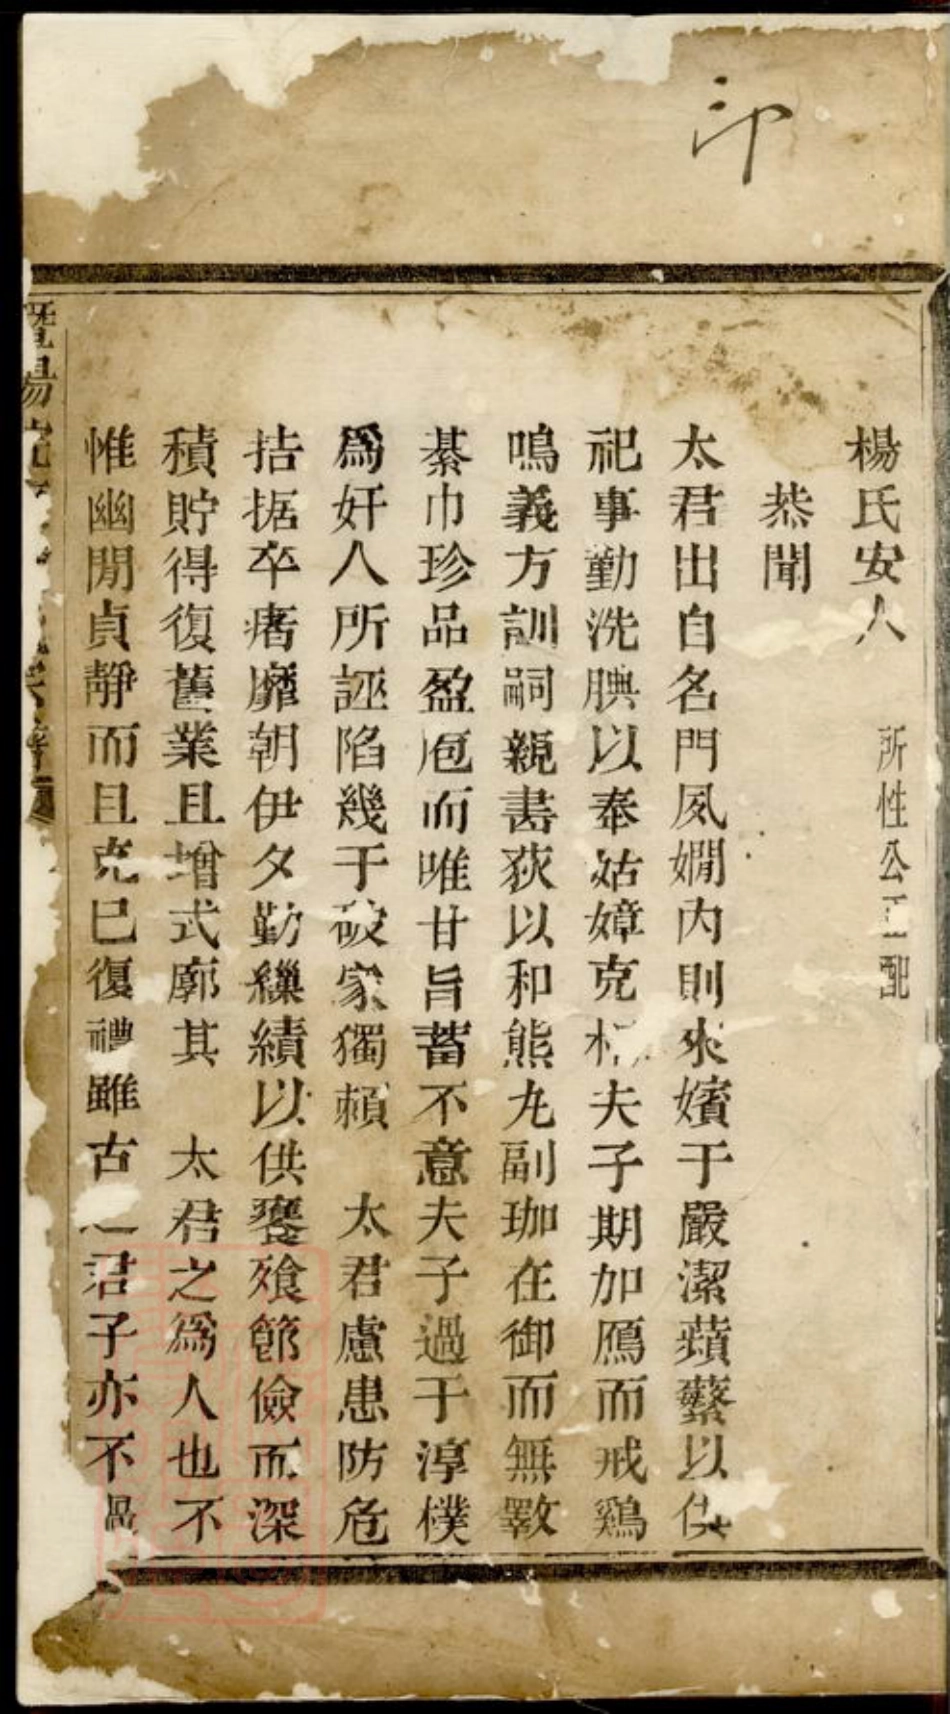 印
楊氏安人 所性公正配
恭聞
太君出自名門夙嫺內則來嬪于嚴潔蘋蘩以供
祀事勤洗腆以奉姑嫜克相夫子期加鴈而戒鷄
鳴義方訓嗣親書荻以和熊丸副珈在御而無斁
綦巾珍品盈庖而唯甘旨蓄不意夫子過于淳樸
爲奸人所誣陷幾于破家獨賴 太君慮患防危
拮据卒瘏靡朝伊夕勤繅績以供饔飧節儉而深
積貯得復舊業且增式廓其 太君之爲人也不
惟幽閒貞靜而且克已復禮雖古之君子亦不
暨陽